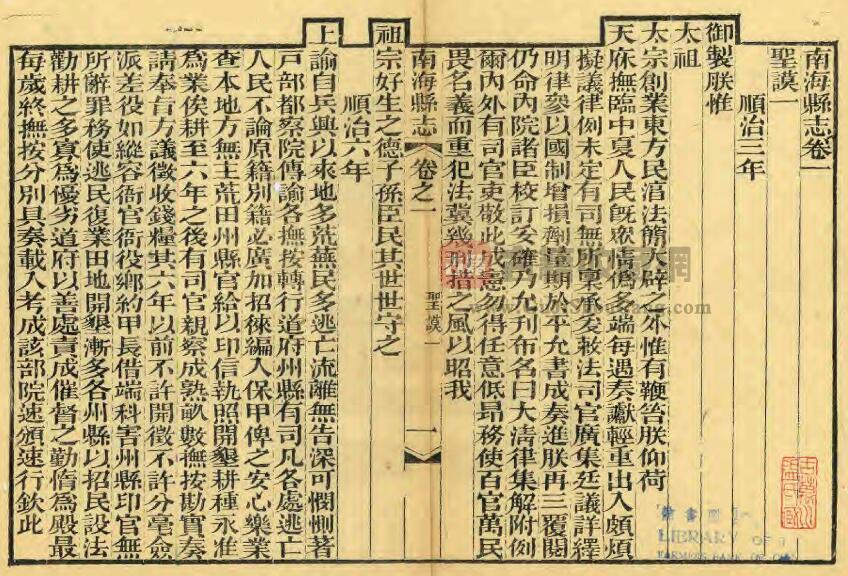 南海縣志卷一
聖謨一
順治三年
御製朕惟
太祖
太宗創業東方民淳法簡大辟之外惟有鞭笞朕仰荷
天庥撫臨中夏人民旣衆情僞多端每遇奏讞輕重出入頗煩
擬議律例未定有司無所稟承爰敕法司官廣集廷議詳繹
明律參以國制增損劑量期於平允書成奏進朕再三覆閱
仍命內院諸臣校訂妥確乃允刊布名曰大淸律集解附例
爾內外有司官吏敬此成憲勿得任意低昂務使百官萬民
畏名義而重犯法冀幾刑措之風以昭我
南海縣志
卷之一
聖謨一
一
祖宗好生之德子孫臣民其世世守之
順治六年
上諭自兵興以來地多荒蕪民多逃亡流離無告深可憫惻著
戸部都察院傳諭各撫按轉行道府州縣有司凡各處逃亡
人民不論原籍別籍必廣加招徠編入保甲俾之安心樂業
查本地方無主荒田州縣官給以印信執照開墾耕種永准
爲業俟耕至六年之後有司官親察成熟畝數撫按勘實奏
請奉旨方議徵收錢糧其六年以前不許開徵不許分毫僉
派差役如縱容衙官衙役鄉約甲長借端科害州縣印官無
所辭罪務使逃民復業田地開墾漸多各州縣以招民設法
勸耕之多寡爲優劣道府以善處責成催督之勤惰爲殿最
每歲終撫按分別具奏載入考成該部院速頒速行欽此
LIBRARY OF